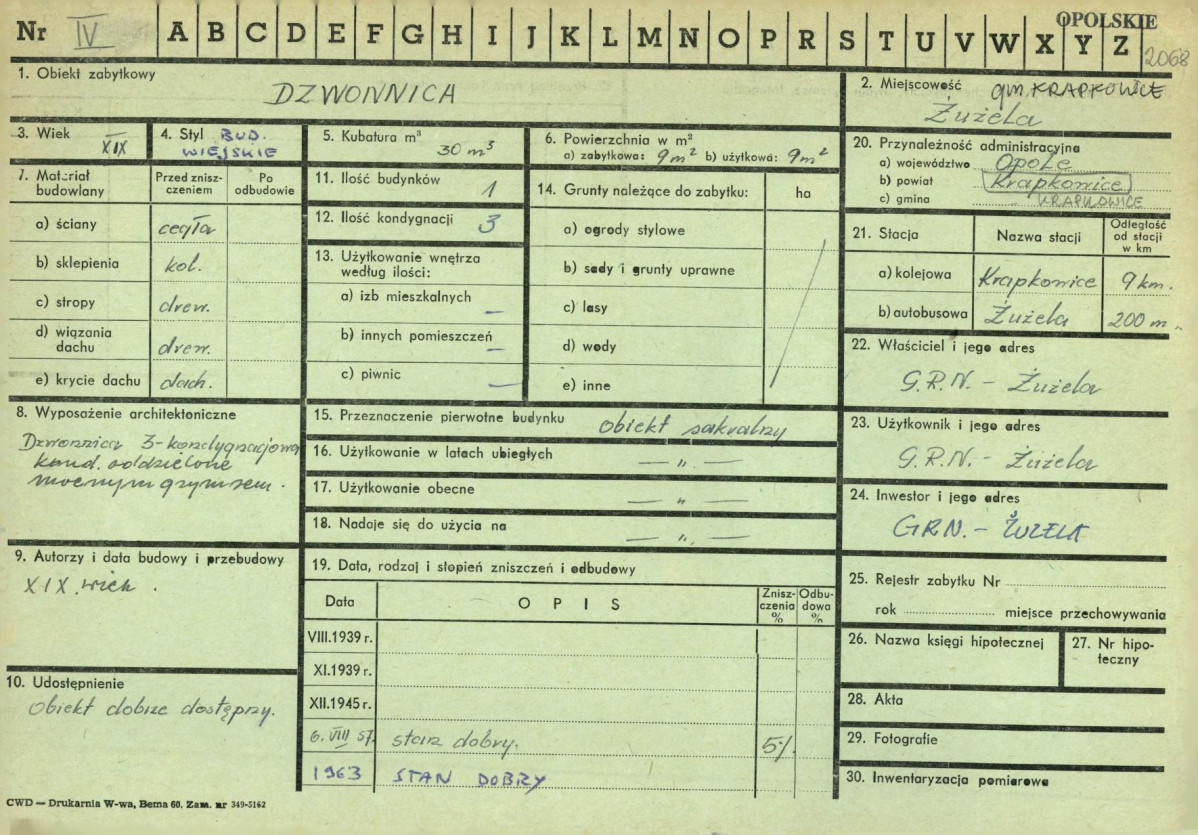 Nr IV A B C D E F G H I J K L M N O P R S T U V W X Y Z
OPOLSKIE
2068
1. Obiekt zabytkowy
DZWONNICA
2. Miejscowość gm. KRAPKOWICE
Żużela
3. Wiek
XIX
4. Styl BUD.
WIEJSKIE
5. Kubatura m³
30 m³
6. Powierzchnia w m²
a) zabytkowa: 9m² b) użytkowa: 9m²
7. Materiał budowlany
Przed zniszczeniem
Po odbudowie
a) ściany cegła
b) sklepienia kol.
c) stropy drew.
d) wiązania dachu drew.
e) krycie dachu dach.
8. Wyposażenie architektoniczne
Dzwonnica 3-kondygnacjowa
kond. oddzielone
mocnym gzymsem.
9. Autorzy i data budowy i przebudowy
XIX wiek.
10. Udostępnienie
obiekt dobrze dostępny.
11. Ilość budynków 1
12. Ilość kondygnacji 3
13. Użytkowanie wnętrza według ilości:
a) izb mieszkalnych —
b) innych pomieszczeń —
c) piwnic —
14. Grunty należące do zabytku: ha
a) ogrody stylowe
b) sady i grunty uprawne
c) lasy
d) wody
e) inne
15. Przeznaczenie pierwotne budynku obiekt sakralny
16. Użytkowanie w latach ubiegłych — „ —
17. Użytkowanie obecne — „ —
18. Nadaje się do użycia na — „ —
19. Data, rodzaj i stopień zniszczeń i odbudowy
Data OPIS Zniszczenia % Odbudowa %
VIII.1939 r.
XI.1939 r.
XII.1945 r.
6. VIII 57. stan dobry. 5%
1963 STAN DOBRY
20. Przynależność administracyjna
a) województwo Opole
b) powiat Krapkowice
c) gmina KRAPKOWICE
21. Stacja Nazwa stacji Odległość od stacji w km
a) kolejowa Krapkowice 9 km.
b) autobusowa Żużela 200 m.
22. Właściciel i jego adres
G.R.N. - Żużela
23. Użytkownik i jego adres
G.R.N. - Żużela
24. Inwestor i jego adres
GRN. - ŻUZELA
25. Rejestr zabytku Nr
rok miejsce przechowywania
26. Nazwa księgi hipotecznej
27. Nr hipoteczny
28. Akta
29. Fotografie
30. Inwentaryzacja pomiarowa
CWD — Drukarnia W-wa, Bema 60. Zam. nr 349-5162